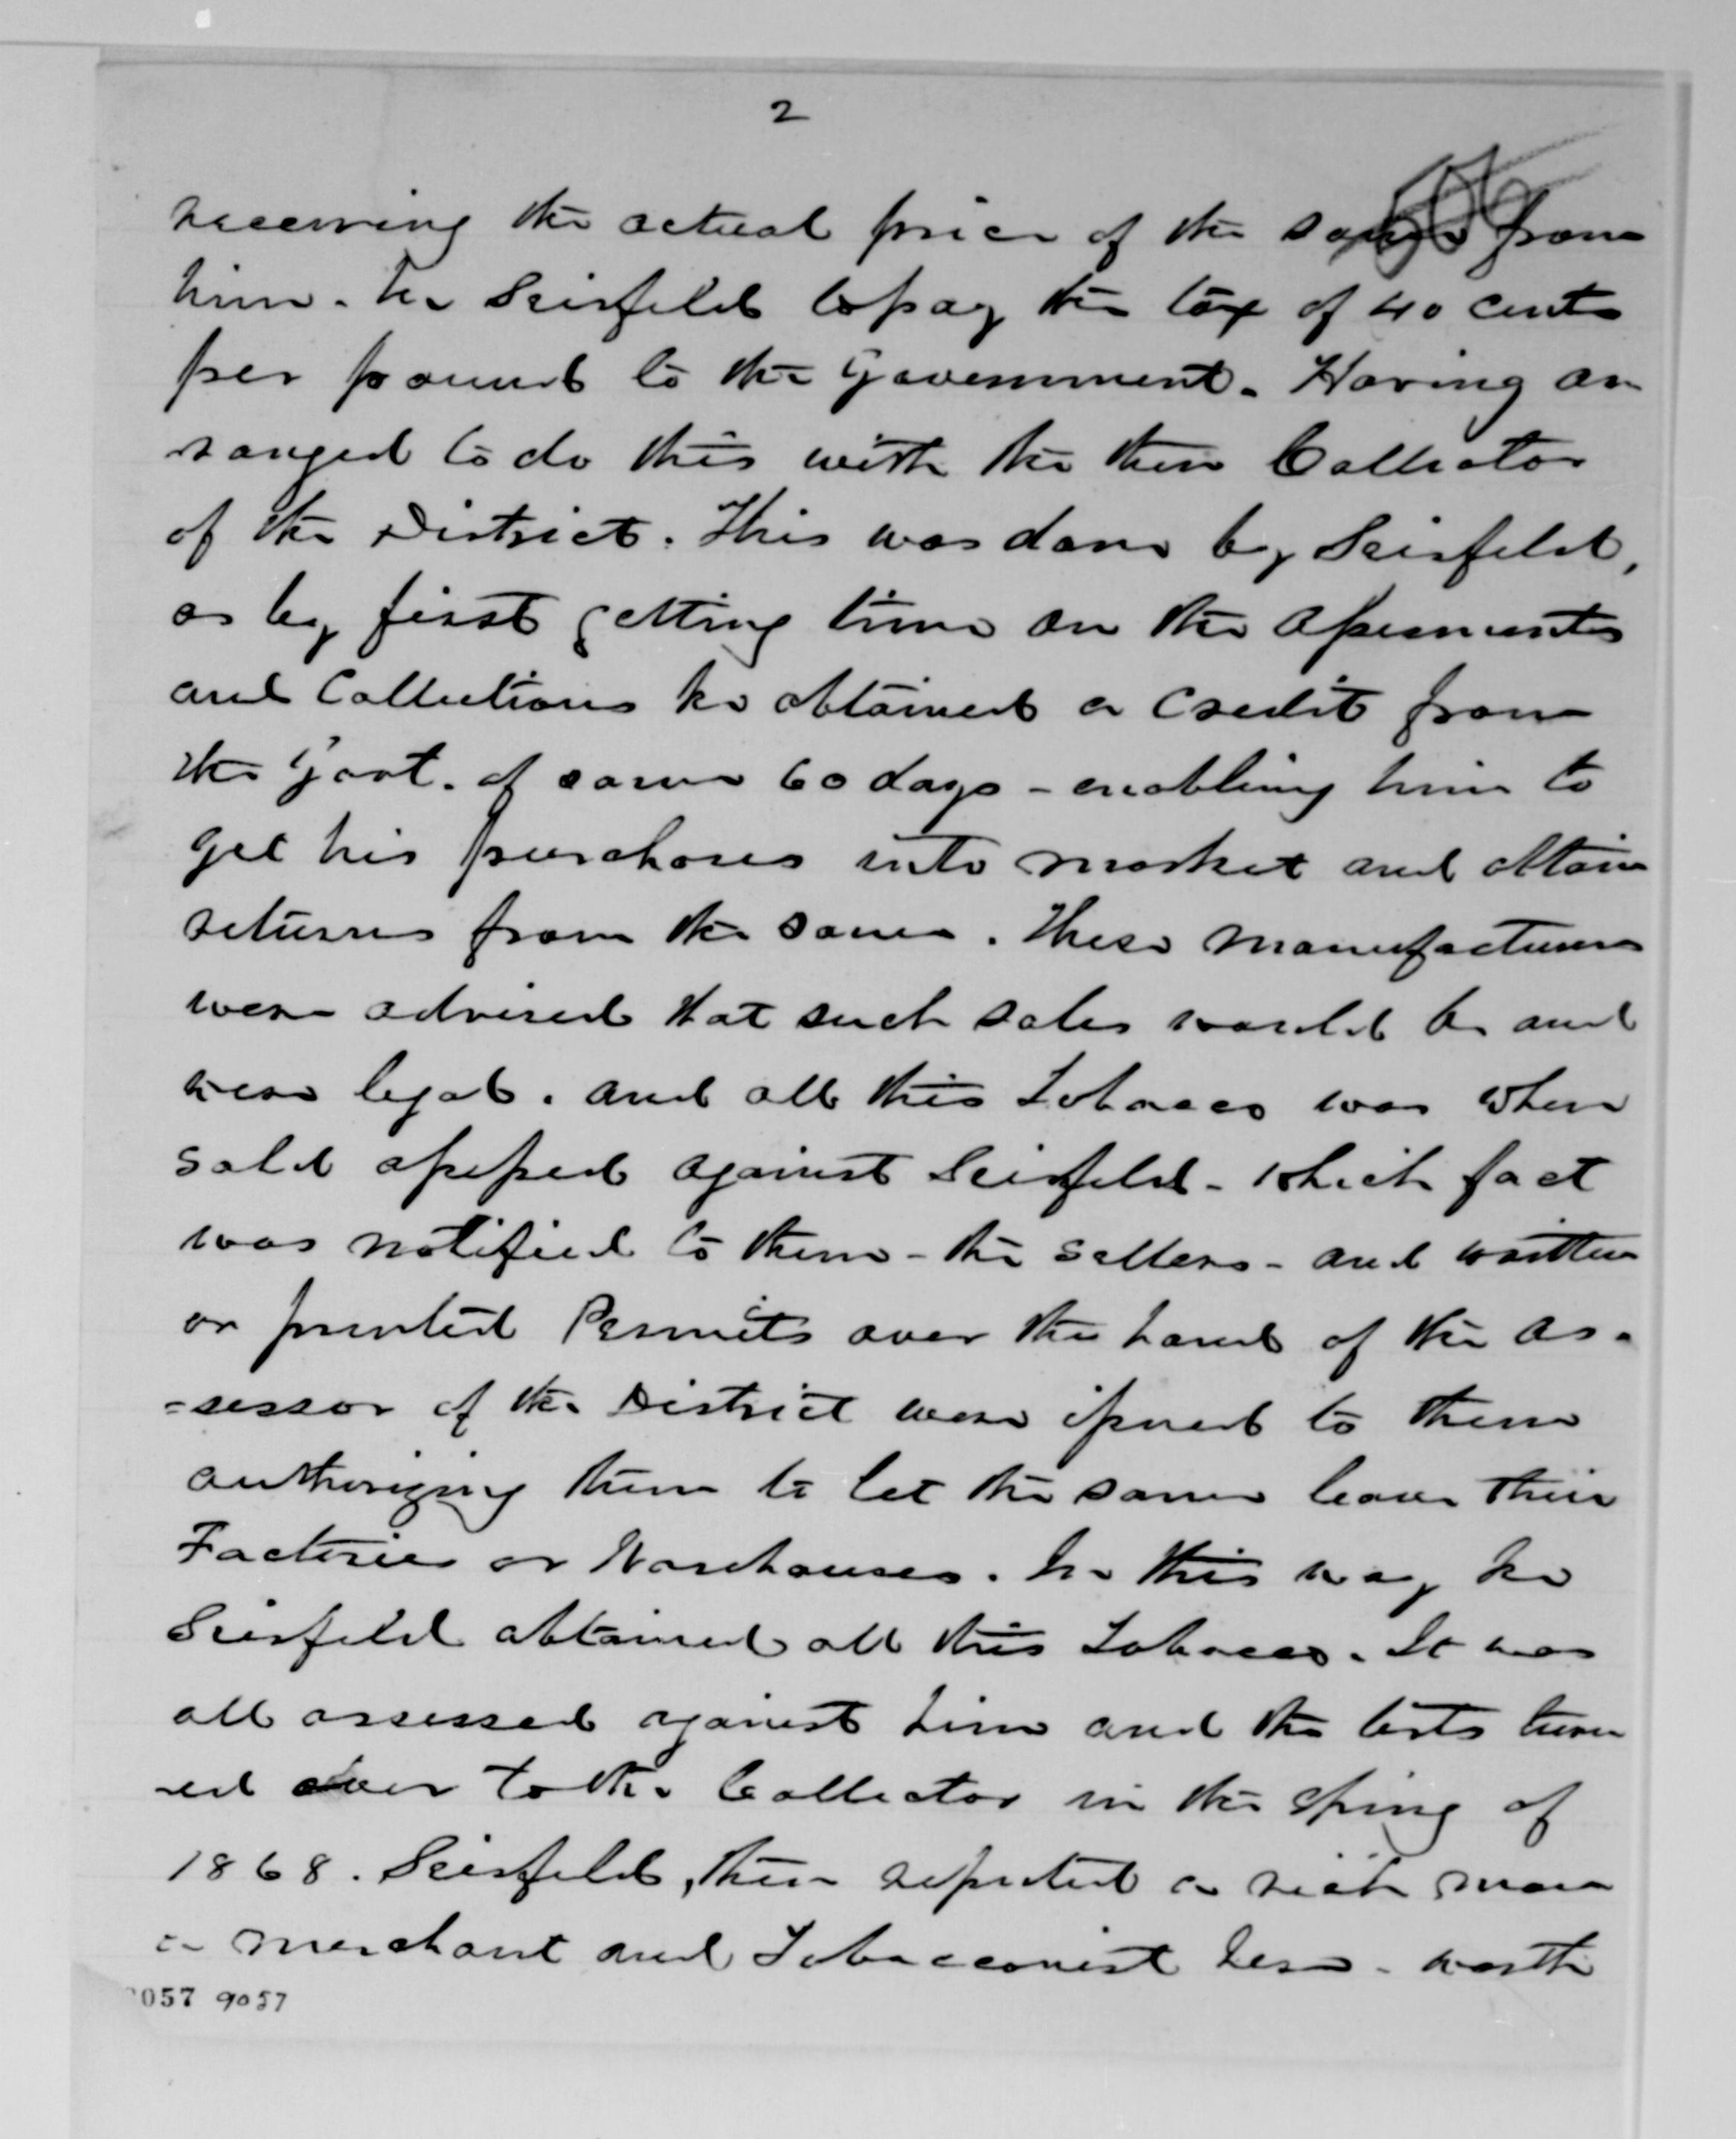 2
receiving the actual price of the same from
him. he Seisfeld to pay the tax of 40 cents
per pound to the Government. Having ar
ranged to do this with the then Collector
of the District. This was done by Seisfeld,
as by first getting time on the Assessments
and Collections he obtained a Credit from
the Govt. of some 60 days - enabling him to
get his purchases into market and obtain
returns from the same. These manufacturers
were advised that such sales would be and
were legal. and all this Tobacco was when
sold assessed against Seisfeld - which fact
was notified to them - the sellers - and written
or printed Permits over the hand of the as-
-sessor of the District were issued to them
authorizing them to let the same leave their
Factories or Warehouses. In this way he
Seisfeld obtained all this Tobacco. It was
all assessed against him and the lists turn
-ed over to the Collector in the Spring of
1868. Seisfeld, then reputed a rich man
a merchant and Tobacconist here - worth
057 9057